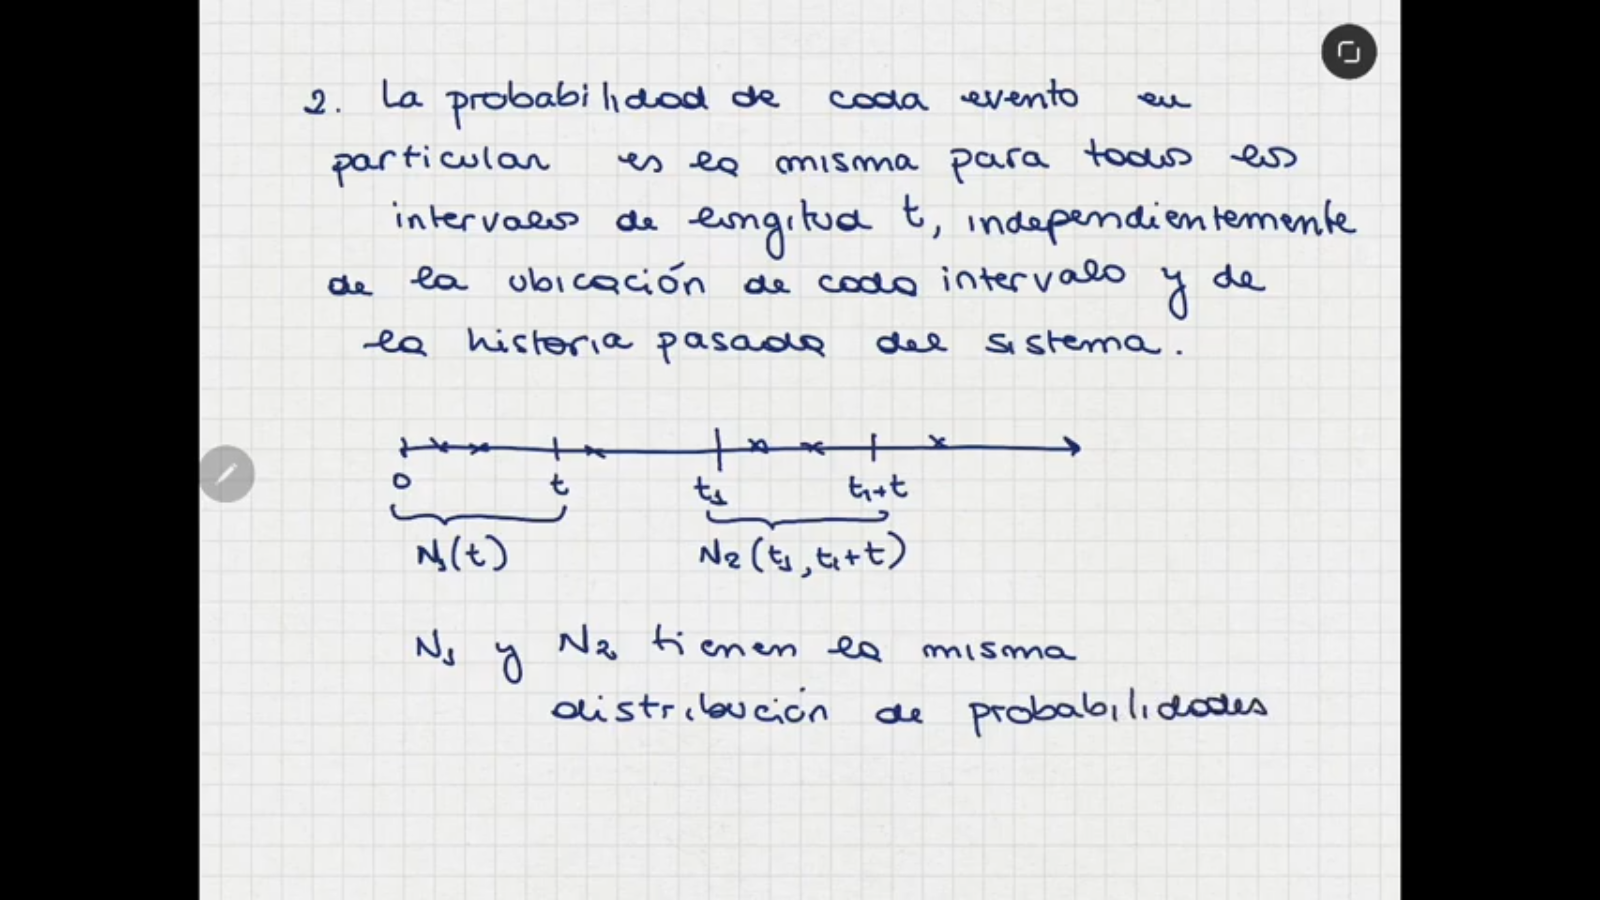 2. La probabilidad de cada evento en
particular es la misma para todos los
intervalos de longitud t, independientemente
de la ubicación de cada intervalo y de
la historia pasada del sistema.
0 t t₁ t₁+t
N₁(t) N₂(t₁, t₁+t)
N₁ y N₂ tienen la misma
distribución de probabilidades